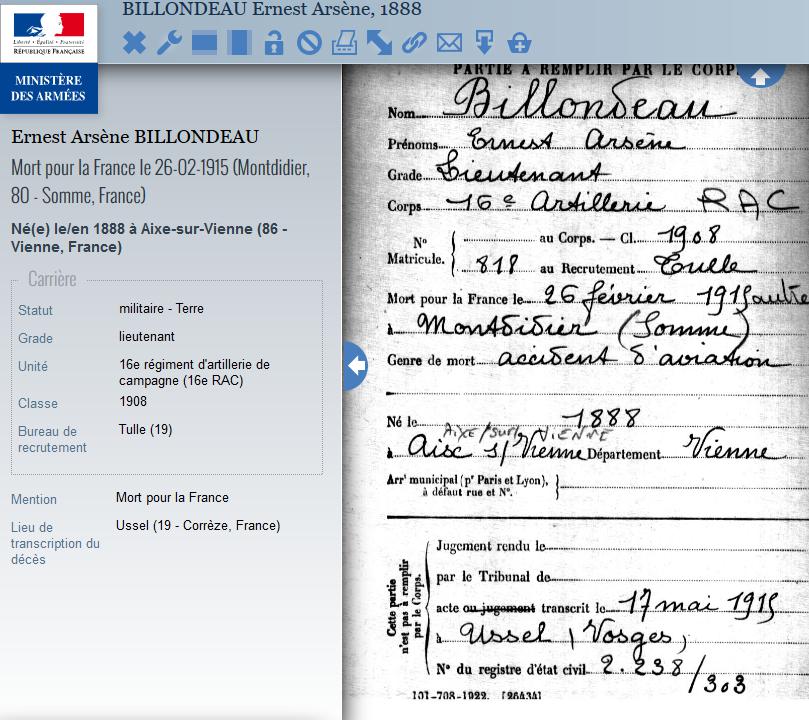 BILLONDEAU Ernest Arsène, 1888
Liberté • Égalité • Fraternité
RÉPUBLIQUE FRANÇAISE
MINISTÈRE
DES ARMÉES
Ernest Arsène BILLONDEAU
Mort pour la France le 26-02-1915 (Montdidier,
80 - Somme, France)
Né(e) le/en 1888 à Aixe-sur-Vienne (86 -
Vienne, France)
Carrière
Statut militaire - Terre
Grade lieutenant
Unité 16e régiment d'artillerie de
campagne (16e RAC)
Classe 1908
Bureau de
recrutement Tulle (19)
Mention Mort pour la France
Lieu de
transcription du
décès Ussel (19 - Corrèze, France)
PARTIE A REMPLIR PAR LE CORP
Nom Billondeau
Prénoms Ernest Arsène
Grade Lieutenant
Corps 16e Artillerie RAC
N° Matricule. { au Corps. — Cl. 1908
818 au Recrutement Tulle
Mort pour la France le 26 février 1915
à Montdidier (Somme)
Genre de mort accident d'aviation
Né le 1888
AIXE/SUR/VIENNE
à Aixe s/ Vienne Département Vienne
Arrt municipal (pr Paris et Lyon),
à défaut rue et N°.
Cette partie
n'est pas à remplir
par le Corps.
Jugement rendu le
par le Tribunal de
acte ou jugement transcrit le 17 mai 1915
à Ussel (Vosges)
N° du registre d'état civil 2.238/303
101-708-1922. [26434]